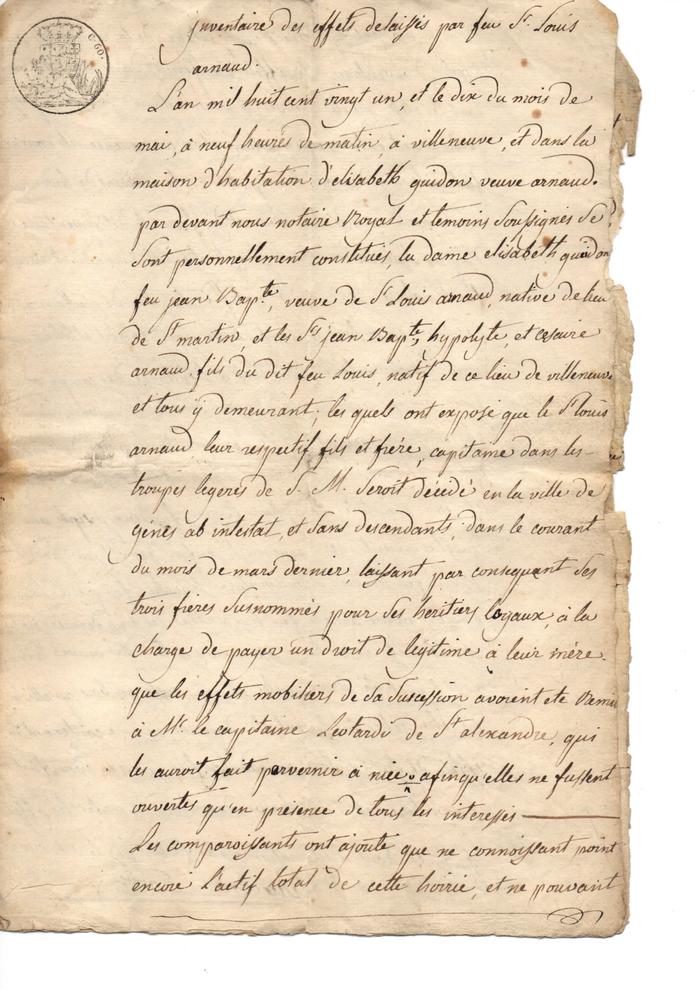 C. 60.
inventaire des effets delaissés par feu Sr. Louis
arnaud.
L'an mil huit cent vingt un, et le dix du mois de
mai, à neuf heures de matin, à villeneuve, et dans la
maison d'habitation d'elisabeth guidon veuve arnaud.
par devant nous notaire Royal et temoins soussignés se
sont personnellement constitués, la dame elisabeth guidon
feu jean Bapte., veuve de Sr Louis arnaud, native de lieu
de St martin, et les Srs jean Bapte, hypolyte, et cesaire
arnaud fils du dit feu Louis, natif de ce lieu de villeneuve
et tous y demeurant; les quels ont exposé que le Sr louis
arnaud leur respectif fils et frére, capitaine dans les
troupes legeres de S. M. seroit décédé en la ville de
génes ab intestat, et sans descendants, dans le courant
du mois de mars dernier, laissant par consequant ses
trois fréres susnommés pour ses heritiers loyaux, à la
charge de payer un droit de légitime à leur mére.
que les effets mobiliers de sa succession avoient eté Remis
à Mr. le capitaine Leotardi de St alexandre, qui
les auroit fait parvenir à nice, afin qu'elles ne fussent
ouvertes qu'en presence de tous les interessés
Les comparoissants ont ajouté que ne connoissant point
encore l'actif total de cette hoirie, et ne pouvant